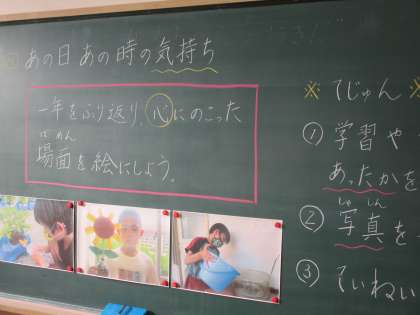 あの日あの時の気持ち
一年をふり返り、心にのこった
ばめん
場面を絵にしよう。
※ てじゅん ※
① 学習や
あったかを
しゃしん
② 写真を
③ ていねい